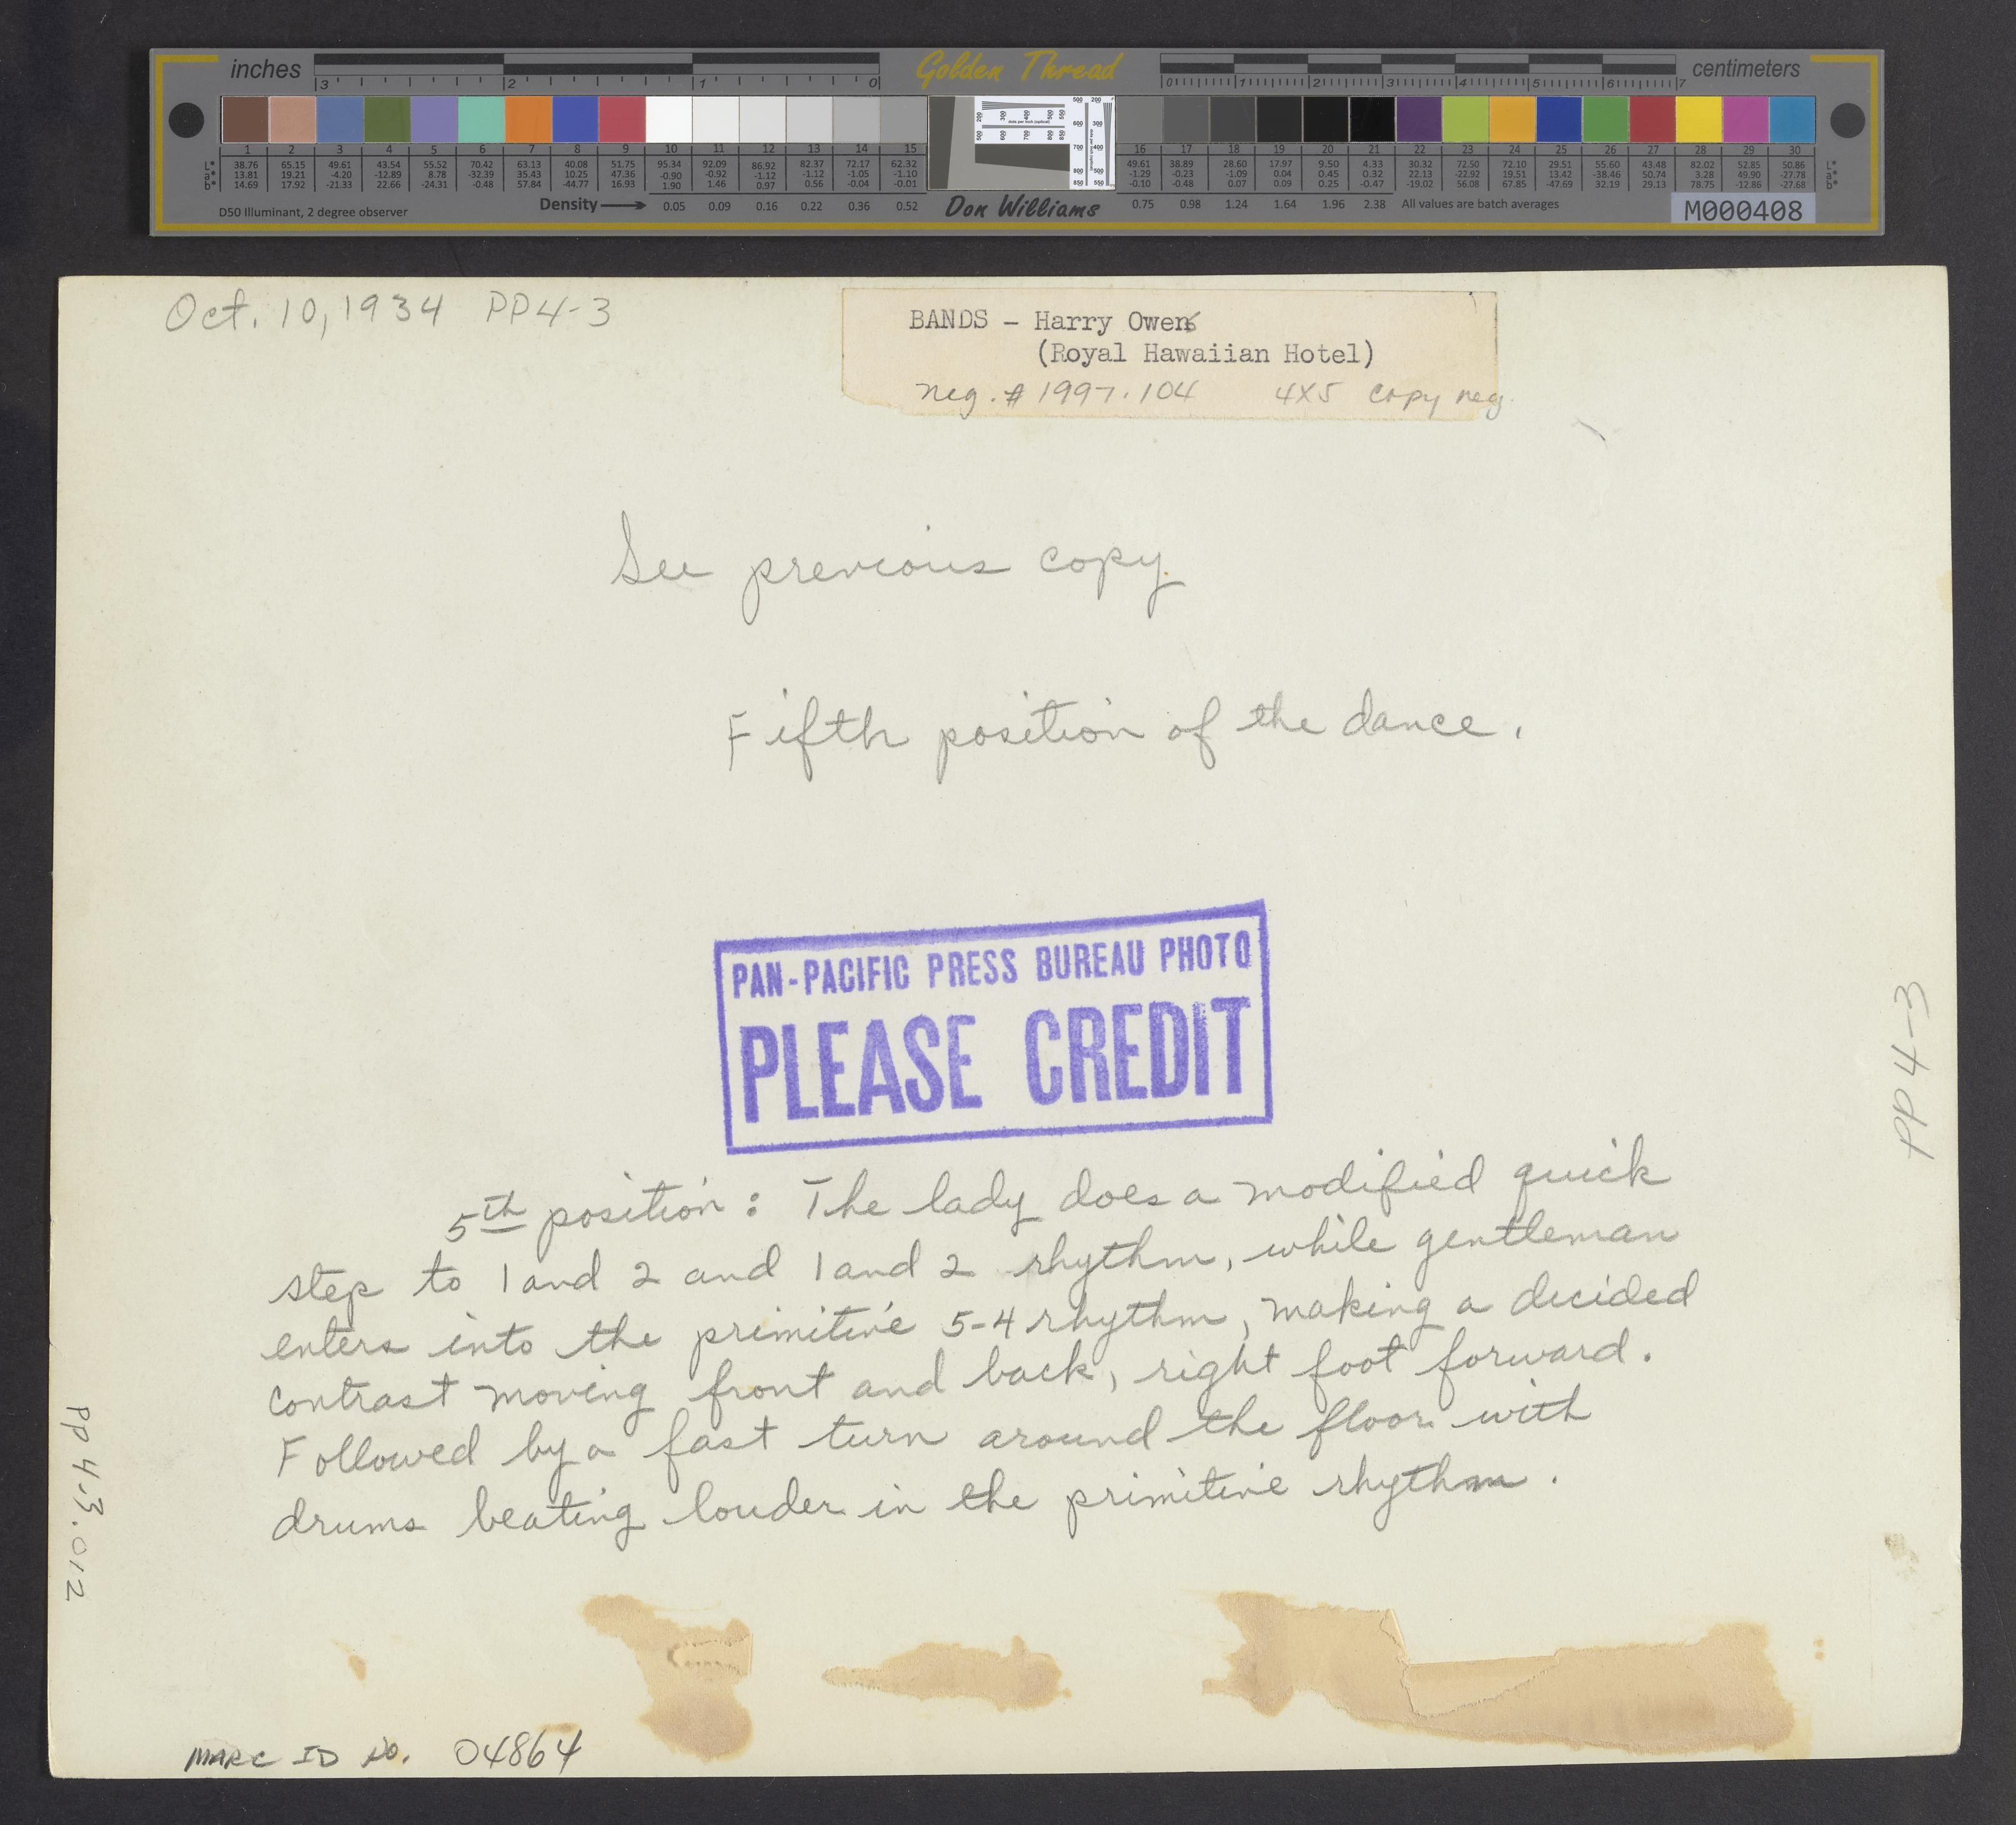 inches
3 2 1 0
Golden Thread
0 1 2 3 4 5 6 7
centimeters
1 2 3 4 5 6 7 8 9 10 11 12 13 14 15
L* 38.76 65.15 49.61 43.54 55.52 70.42 63.13 40.08 51.75 95.34 92.09 86.92 82.37 72.17 62.32
a* 13.81 19.21 -4.20 -12.89 8.78 -32.39 35.43 10.25 47.36 -0.90 -0.92 -1.12 -1.12 -1.05 -1.10
b* 14.69 17.92 -21.33 22.66 -24.31 -0.48 57.84 -44.77 16.93 1.90 1.46 0.97 0.56 -0.04 -0.01
16 17 18 19 20 21 22 23 24 25 26 27 28 29 30
49.61 38.89 28.60 17.97 9.50 4.33 30.32 72.50 72.10 29.51 55.60 43.48 82.02 52.85 50.86 L*
-1.29 -0.23 -1.09 0.04 0.45 0.32 22.13 -22.92 19.51 13.42 -38.46 50.74 3.28 49.90 -27.78 a*
-0.10 -0.48 0.07 0.09 0.25 -0.47 -19.02 56.08 67.85 -47.69 32.19 29.13 78.75 -12.86 -27.68 b*
D50 Illuminant, 2 degree observer
Density 0.05 0.09 0.16 0.22 0.36 0.52
Don Williams
0.75 0.98 1.24 1.64 1.96 2.38 All values are batch averages
M000408
Oct. 10, 1934 PP4-3
BANDS - Harry Owens
(Royal Hawaiian Hotel)
neg. # 1997.104 4X5 copy neg.
See previous copy.
Fifth position of the dance.
PAN-PACIFIC PRESS BUREAU PHOTO
PLEASE CREDIT
PP 4-3
5th position: The lady does a modified quick
step to 1 and 2 and 1 and 2 rhythm, while gentleman
enters into the primitive 5-4 rhythm, making a decided
contrast moving front and back, right foot forward.
Followed by a fast turn around the floor with
drums beating louder in the primitive rhythm.
PP 4.3.012
MARC ID NO. 04864